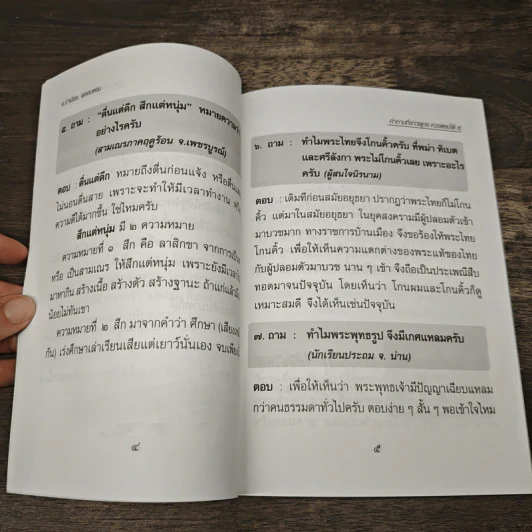 ๕. ถาม : "ตื่นแต่ดึก สึกแต่หนุ่ม" หมายความว่า
อย่างไรครับ
(สามเณรภาคฤดูร้อน จ.เพชรบูรณ์)
ตอบ : ตื่นแต่ดึก หมายถึงตื่นก่อนแจ้ง หรือตื่นแต่
ไม่นอนตื่นสาย เพราะจะทำให้มีเวลาทำงาน
ความดีได้มากขึ้น ใช่ไหมครับ
สึกแต่หนุ่ม มี ๒ ความหมาย
ความหมายที่ ๑ สึก คือ ลาสิกขา จากการเป็น
หรือ เป็นสามเณร ให้สึกแต่หนุ่ม เพราะยังมีเวลา
มาหากิน สร้างเนื้อ สร้างตัว สร้างฐานะ ถ้าแก่แล้ว
น้อยไม่ทันเขา
ความหมายที่ ๒ สึก มาจากคำว่า ศึกษา (เสียง
กัน) เร่งศึกษาเล่าเรียนเสียแต่เยาว์นั่นเอง จบเพียง
๔
คำถามที่ชาวพุทธ ควรตอบได้ ๕
๖. ถาม : ทำไมพระไทยจึงโกนคิ้วครับ ที่พม่า ทิเบต
และศรีลังกา พระไม่โกนคิ้วเลย เพราะอะไร
ครับ (ผู้สนใจนิรนาม)
ตอบ : เดิมทีก่อนสมัยอยุธยา ปรากฏว่าพระไทยก็ไม่โกน
คิ้ว แต่มาในสมัยอยุธยา ในยุคสงครามมีผู้ปลอมตัวเข้า
มาบวชมาก ทางราชการบ้านเมือง จึงขอร้องให้พระไทย
โกนคิ้ว เพื่อให้เห็นความแตกต่างของพระแท้ของไทย
กับผู้ปลอมตัวมาบวช นาน ๆ เข้า จึงถือเป็นประเพณีสืบ
ทอดมาจนปัจจุบัน โดยเห็นว่า โกนผมและโกนคิ้วก็ดู
เหมาะสมดี จึงได้เห็นเช่นปัจจุบัน
๗. ถาม : ทำไมพระพุทธรูป จึงมีเกศแหลมครับ
(นักเรียนประถม จ. น่าน)
ตอบ : เพื่อให้เห็นว่า พระพุทธเจ้ามีปัญญาเฉียบแหลม
กว่าคนธรรมดาทั่วไปครับ ตอบง่าย ๆ สั้น ๆ พอเข้าใจไหม
๕